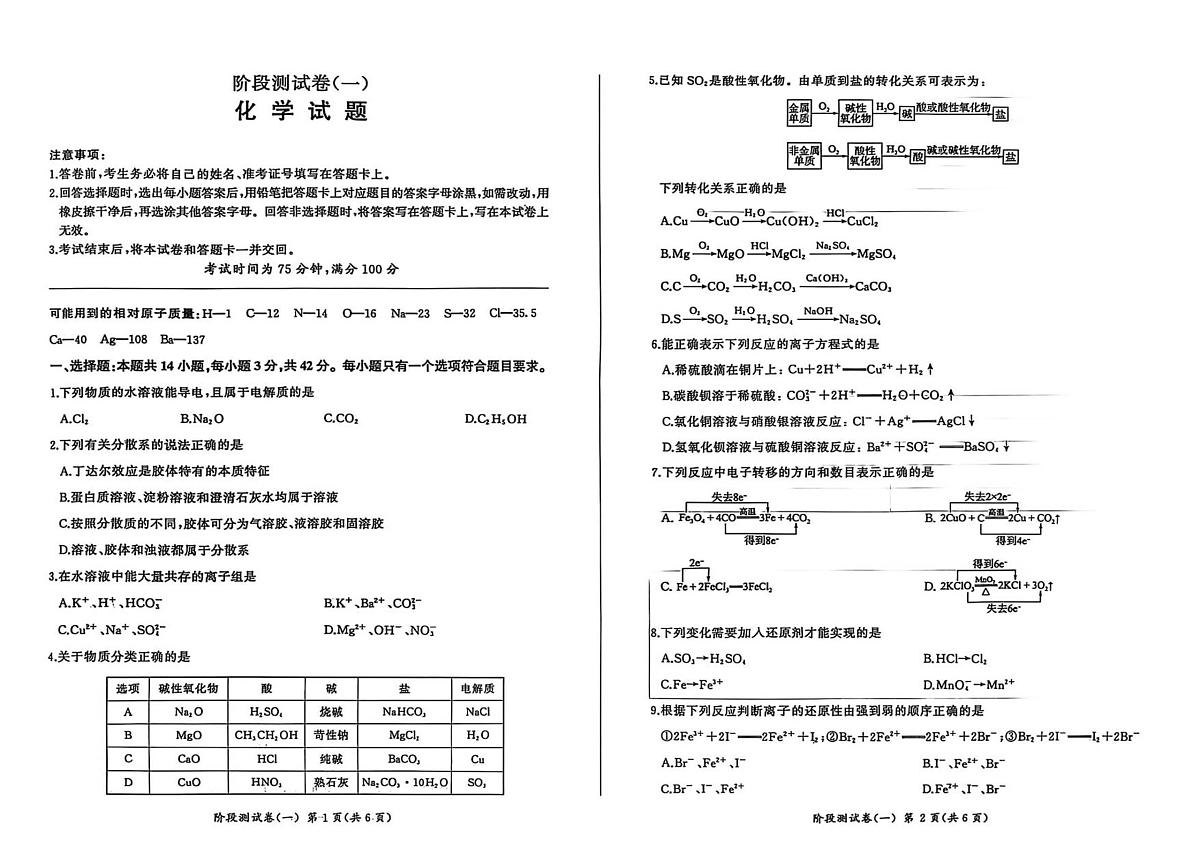 阶段测试卷(一)
化 学 试 题
注意事项:
1.答卷前,考生务必将自己的姓名、准考证号填写在答题卡上。
2.回答选择题时,选出每小题答案后,用铅笔把答题卡上对应题目的答案字母涂黑,如需改动,用
橡皮擦干净后,再选涂其他答案字母。回答非选择题时,将答案写在答题卡上,写在本试卷上
无效。
3.考试结束后,将本试卷和答题卡一并交回。
考试时间为 75 分钟,满分 100 分
可能用到的相对原子质量:H—1 C—12 N—14 O—16 Na—23 S—32 Cl—35.5
Ca—40 Ag—108 Ba—137
一、选择题:本题共 14 小题,每小题 3 分,共 42 分。每小题只有一个选项符合题目要求。
1.下列物质的水溶液能导电,且属于电解质的是
A.Cl₂ B.Na₂O C.CO₂ D.C₂H₅OH
2.下列有关分散系的说法正确的是
A.丁达尔效应是胶体特有的本质特征
B.蛋白质溶液、淀粉溶液和澄清石灰水均属于溶液
C.按照分散质的不同,胶体可分为气溶胶、液溶胶和固溶胶
D.溶液、胶体和浊液都属于分散系
3.在水溶液中能大量共存的离子组是
A.K⁺、H⁺、HCO₃⁻ B.K⁺、Ba²⁺、CO₃²⁻
C.Cu²⁺、Na⁺、SO₄²⁻ D.Mg²⁺、OH⁻、NO₃⁻
4.关于物质分类正确的是
选项 碱性氧化物 酸 碱 盐 电解质
A Na₂O H₂SO₄ 烧碱 NaHCO₃ NaCl
B MgO CH₃CH₂OH 苛性钠 MgCl₂ H₂O
C CaO HCl 纯碱 BaCO₃ Cu
D CuO HNO₃ 熟石灰 Na₂CO₃·10H₂O SO₃
阶段测试卷(一) 第 1 页(共 6 页)
5.已知 SO₂是酸性氧化物。由单质到盐的转化关系可表示为:
金属单质 —O₂→ 碱性氧化物 —H₂O→ 碱 —酸或酸性氧化物→ 盐
非金属单质 —O₂→ 酸性氧化物 —H₂O→ 酸 —碱或碱性氧化物→ 盐
下列转化关系正确的是
A.Cu —O₂→ CuO —H₂O→ Cu(OH)₂ —HCl→ CuCl₂
B.Mg —O₂→ MgO —HCl→ MgCl₂ —Na₂SO₄→ MgSO₄
C.C —O₂→ CO₂ —H₂O→ H₂CO₃ —Ca(OH)₂→ CaCO₃
D.S —O₂→ SO₂ —H₂O→ H₂SO₄ —NaOH→ Na₂SO₄
6.能正确表示下列反应的离子方程式的是
A.稀硫酸滴在铜片上:Cu+2H⁺══Cu²⁺+H₂↑
B.碳酸钡溶于稀硫酸:CO₃²⁻+2H⁺══H₂O+CO₂↑
C.氯化铜溶液与硝酸银溶液反应:Cl⁻+Ag⁺══AgCl↓
D.氢氧化钡溶液与硫酸铜溶液反应:Ba²⁺+SO₄²⁻══BaSO₄↓
7.下列反应中电子转移的方向和数目表示正确的是
失去8e⁻ 失去2×2e⁻
A. Fe₃O₄+4CO 高温══ 3Fe+4CO₂ B. 2CuO+C 高温══ 2Cu+CO₂↑
得到8e⁻ 得到4e⁻
2e⁻ 得到6e⁻
C. Fe+2FeCl₃══3FeCl₂ D. 2KClO₃ MnO₂══△ 2KCl+3O₂↑
失去6e⁻
8.下列变化需要加入还原剂才能实现的是
A.SO₃→H₂SO₄ B.HCl→Cl₂
C.Fe→Fe³⁺ D.MnO₄⁻→Mn²⁺
9.根据下列反应判断离子的还原性由强到弱的顺序正确的是
①2Fe³⁺+2I⁻══2Fe²⁺+I₂;②Br₂+2Fe²⁺══2Fe³⁺+2Br⁻;③Br₂+2I⁻══I₂+2Br⁻
A.Br⁻、Fe²⁺、I⁻ B.I⁻、Fe²⁺、Br⁻
C.Br⁻、I⁻、Fe²⁺ D.Fe²⁺、I⁻、Br⁻
阶段测试卷(一) 第 2 页(共 6 页)